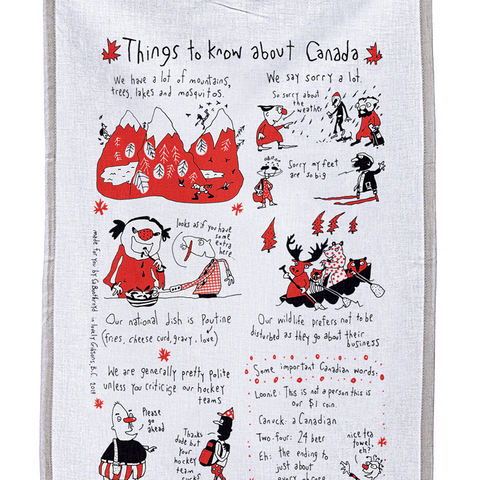 Things to know about Canada
We have a lot of mountains,
trees, lakes and mosquitos.
We say sorry a lot.
So sorry about
the
weather
Sorry my feet
are so big
looks as if you have
some
extra
here
Our national dish is Poutine
(fries, cheese curd, gravy, love)
Our wildlife prefers not to be
disturbed as they go about their
business
We are generally pretty polite
unless you criticize our hockey
teams
Please
go
ahead
Thanks
dude but
your
hockey
team
sucks
Some important Canadian words:
Loonie: This is not a person this is
our $1 coin.
Canuck: a Canadian
Two-four: 24 beer
Eh: the ending to
just about
every phrase
nice tea
towel,
eh?
made for you by
in lovely Gibsons, B.C. 2019